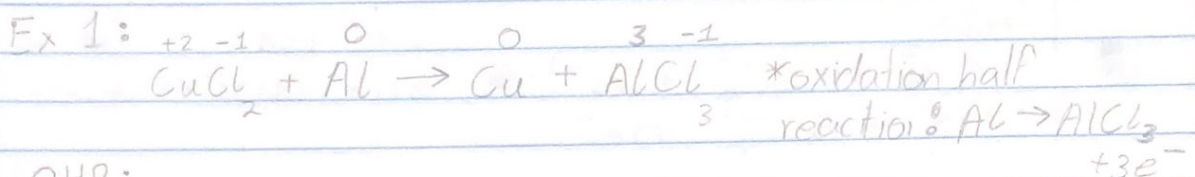 Ex 1: +2 -1 0 0 3 -1
CuCl₂ + Al → Cu + AlCl₃ *oxidation half
reaction: Al → AlCl₃
+3e⁻